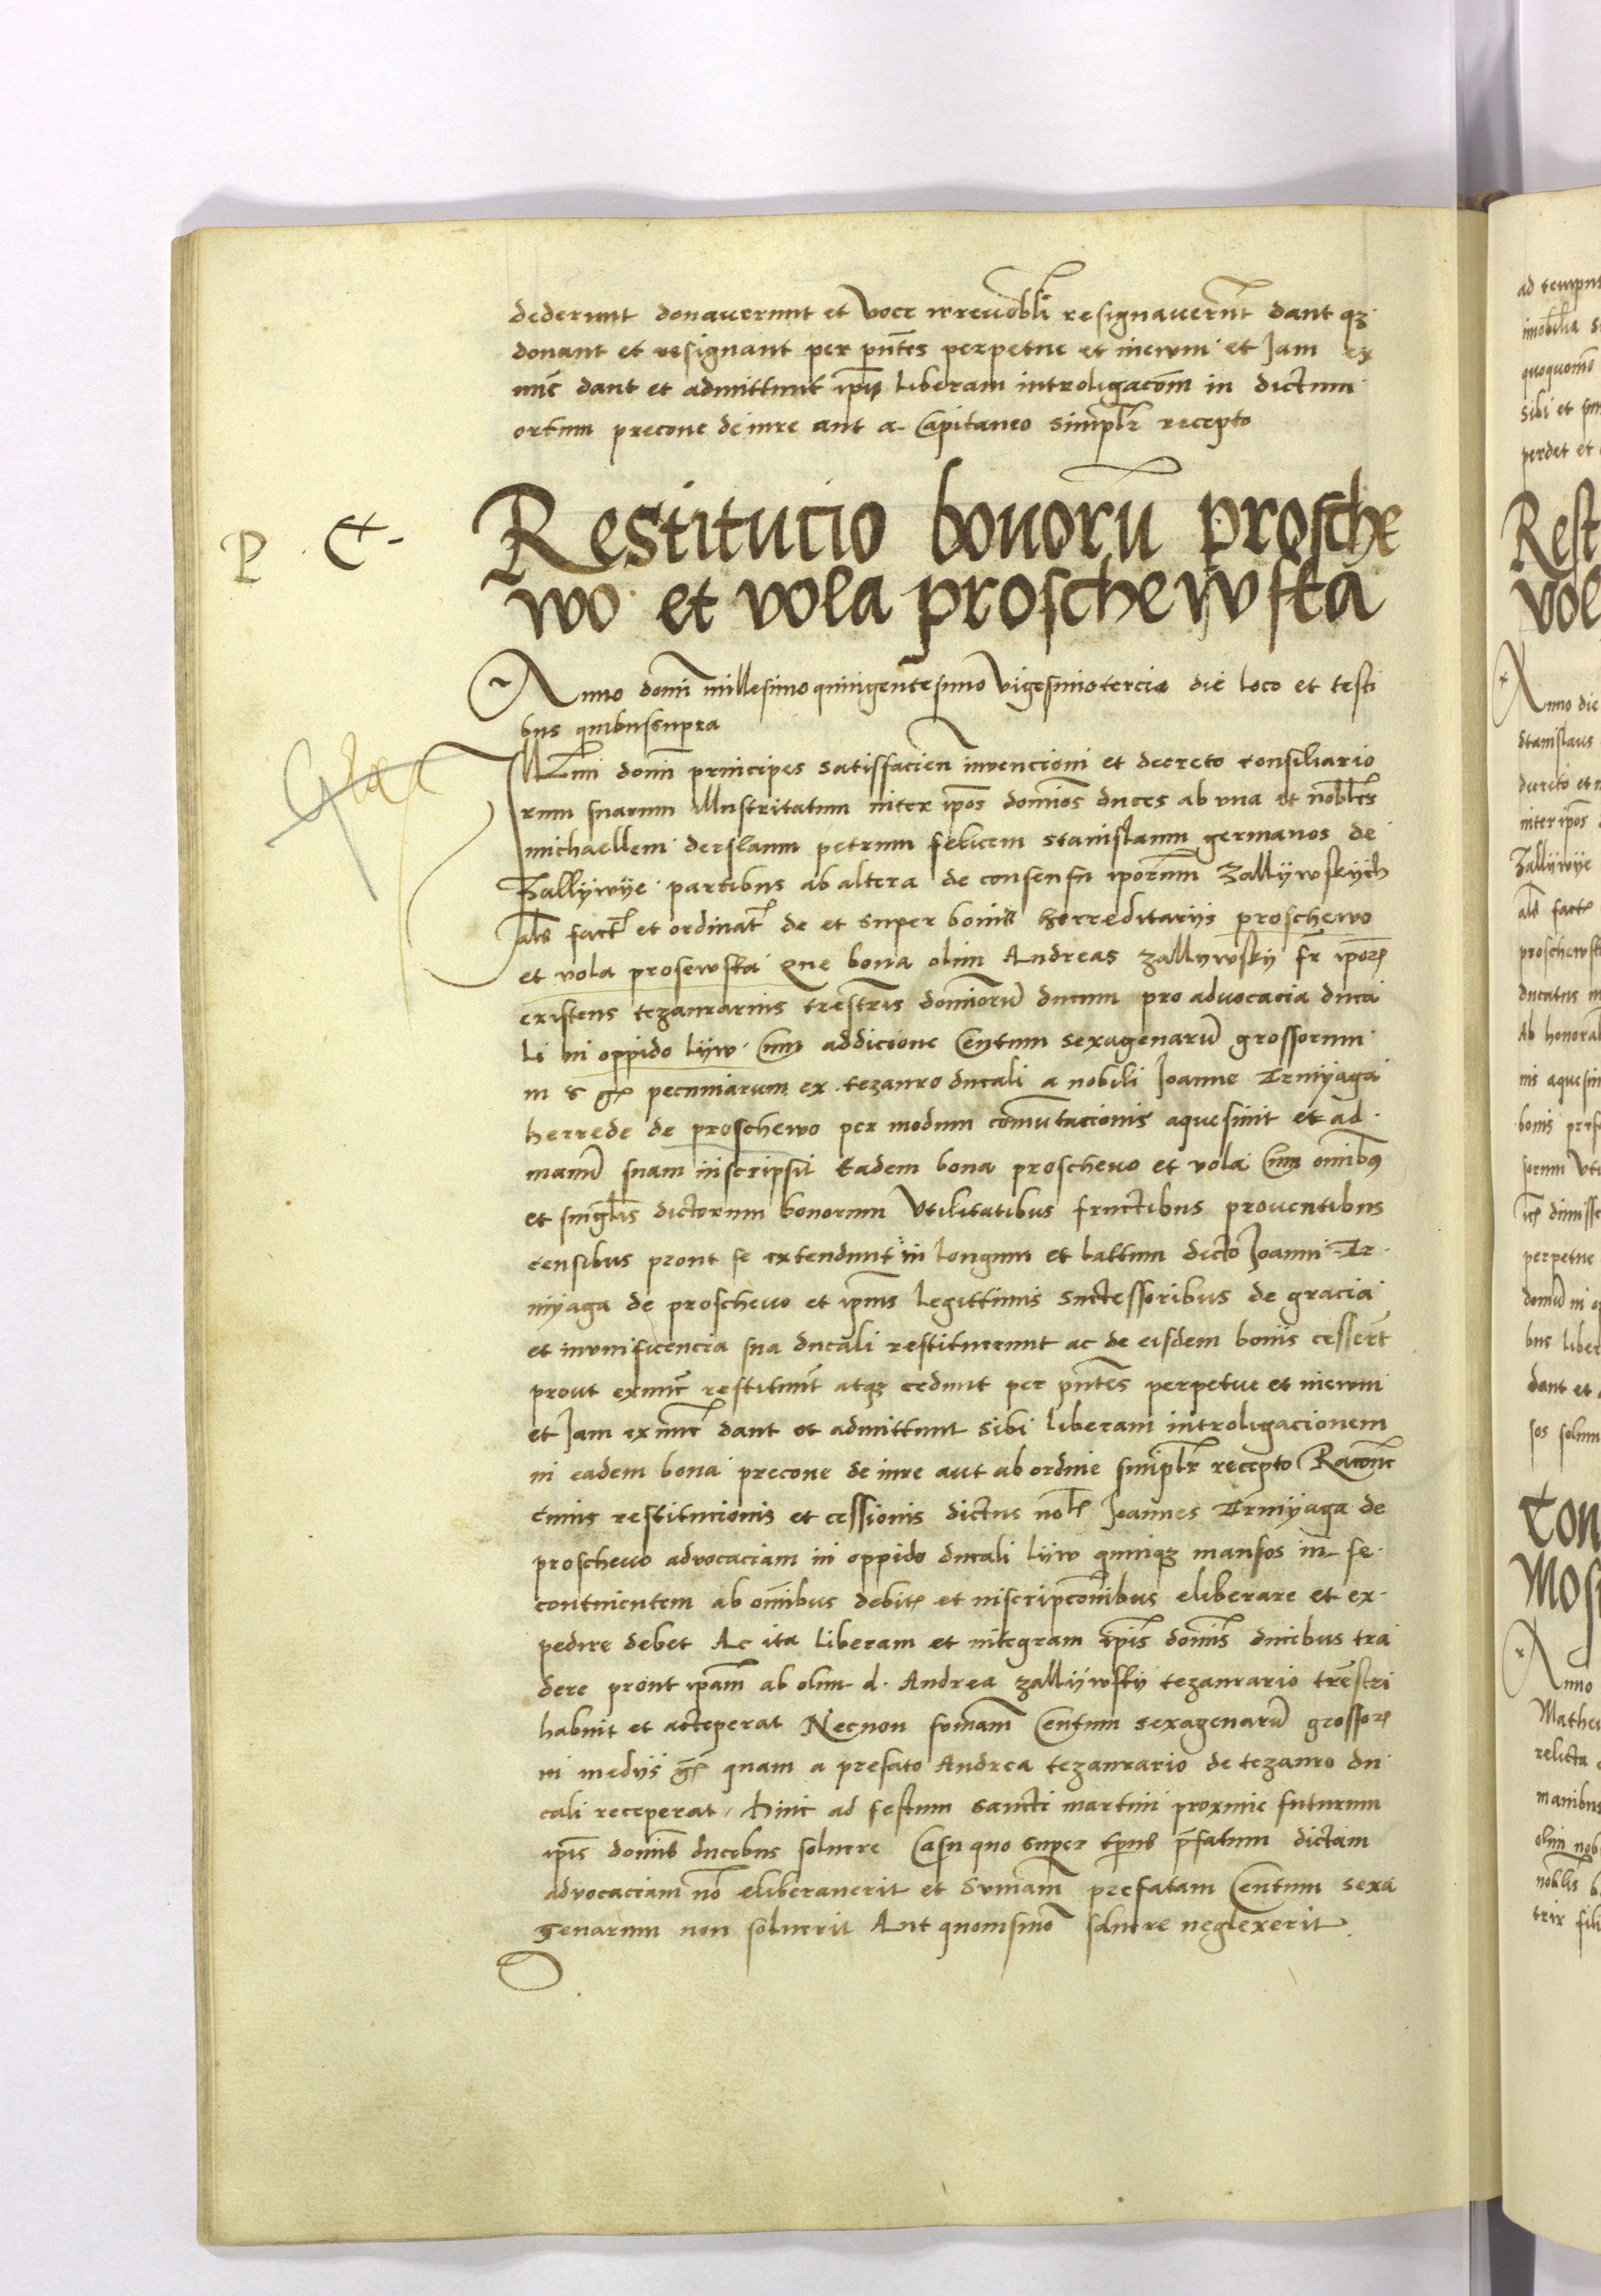 dederunt donaverunt et voce irrevobli resignaverūt dant qz
donant et resignant per pn̄tes perpetue et in evum et Jam ex
nūc dant et admittunt ip̄is liberam introligacōm in dictum
ortum precone de iure aut a Capitaneo simpl̄r recepto
P. C.
Restitucio bonorū prosche
wo et vola proschewska
Anno domī millesimo quingentesimo vigesimotercio die loco et testi
bus quibus supra
Ill̄mi domī principes satisfacien invencioni et decreto consiliario
rum suarum Illustritatum inter ip̄os domīos duces ab una et nobl̄es
michaellem derslaum petrum felicem stanislaum germanos de
Zallijwije partibus ab altera de consensu ip̄orum Zallijwskijch
al̄s fact̄ et ordinat̄ de et super bonis herreditarijs proschewo
et vola prosewska Que bona olim Andreas zallijwskij fr̄ ip̄or̄
existens tezaurarius tr̄estris domīorū ducum pro advocacia duca
li in oppido lijw Cum addicione Centum sexagenarū grossorum
in & gr̄ pecuniarum ex tezauro ducali a nobili Joanne Irmijaga
herrede de proschewo per modum comutacionis aquesivit et ad
manū suam inscripsit Eadem bona proschevo et vola Cum omībus
et singl̄is dictorum bonorum Utilitatibus fructibus proventibus
censibus prout se extendunt in longum et lattum dicto Joanni Ir
mijaga de proschevo et ip̄ius legittimis successoribus de gracia
et munificencia sua ducali restituerunt ac de eisdem bonis cesserūt
prout exnūc restituūt atqz cedunt per pn̄tes perpetue et in evum
et Jam exnūc dant et admittunt sibi liberam introligacionem
in eadem bona precone de iure aut ab ordine simpl̄r recepto Racōne
cuius restitucionis et cessionis dictus nobl̄ Joannes Irmijaga de
proschevo advocaciam in oppido ducali lijw quinqz mansos in se
continentem ab omībus debit̄ et inscripcōnibus eliberare et ex
pedire debet Ac ita liberam et integram ip̄is domīs ducibus tra
dere prout ip̄am ab olim d. Andrea zallijwskij tezaurario tr̄estri
habuit et acceperat Necnon somam̄ Centum sexagenarū grossor̄
in medijs gr̄ quam a prefato Andrea tezaurario de tezauro du
cali receperat hinc ad festum sancti martini proxime futurum
ip̄is domīs ducibus solvere Casu quo super tp̄us pr̄fatum dictam
advocaciam nō eliberaverit et Sumam̄ prefatam Centum sexa
genarum non solverit Aut quomīmo solvere neglexerit